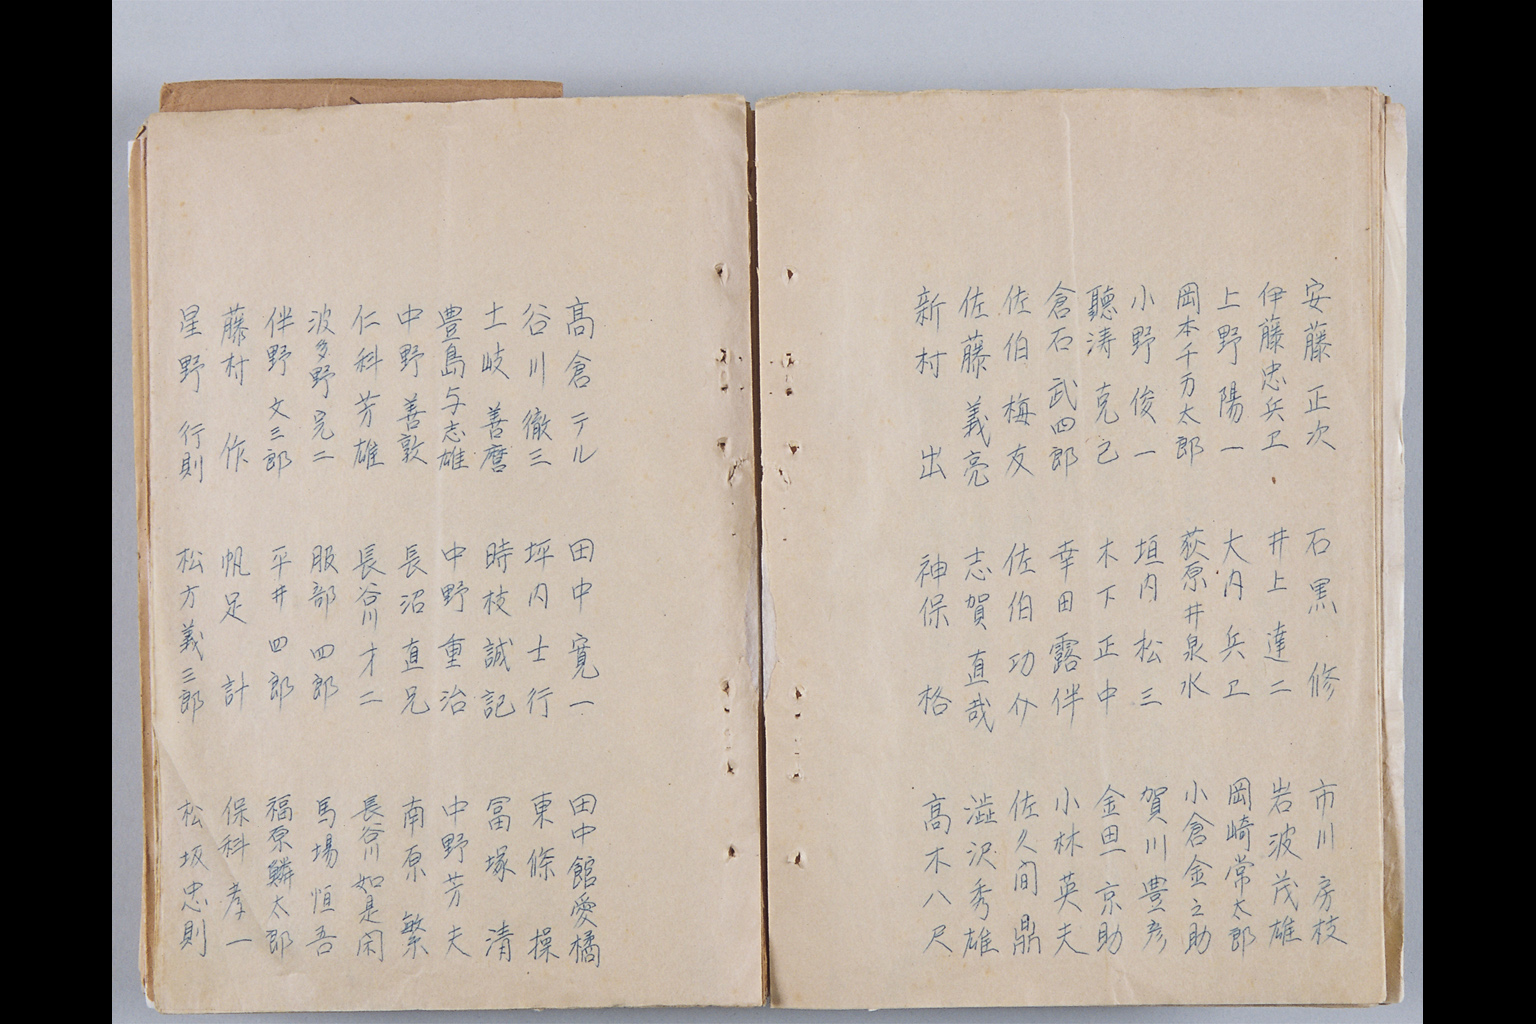 安藤正次 石黒修 市川房枝
伊藤忠兵卫 井上達二 岩波茂雄
上野陽一 大内兵卫 岡崎常太郎
岡本千万太郎 荻原井泉水 小倉金之助
小野俊一 垣内松三 賀川豊彦
聽涛克己 木下正中 金田一京助
倉石武四郎 幸田露伴 小林英夫
佐伯梅友 佐伯功介 佐久间鼎
佐藤義亮 志賀直哉 澁沢秀雄
新村出 神保格 高木八尺
高倉テル 田中寛一 田中館愛橘
谷川徹三 坪内士行 東條操
土岐善麿 時枝誠記 冨塚清
豊島与志雄 中野重治 中野芳夫
中野善敦 長沼直兄 南原繁
仁科芳雄 長谷川才二 長谷川如是闲
波多野完二 服部四郎 馬場恒吾
伴野文三郎 平井四郎 福原麟太郎
藤村作 帆足計 保科孝一
星野行則 松方義三郎 松坂忠則